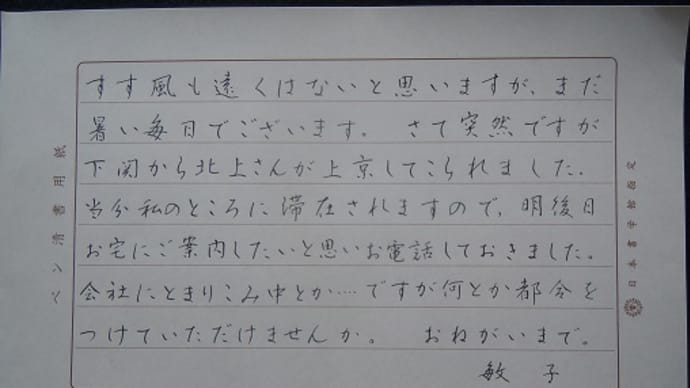 すす風も遠くはないと思いますが、まだ
暑い毎日でございます。 さて突然ですが
下関から北上さんが上京してこられました。
当分私のところに滞在されますので、明後日
お宅にご案内したいと思いお電話しておきました。
会社にとまりこみ中とか…ですが何とか都合を
つけていただけませんか。 おねがいまで。
敏子
ペン清書用紙
日本書学館指定